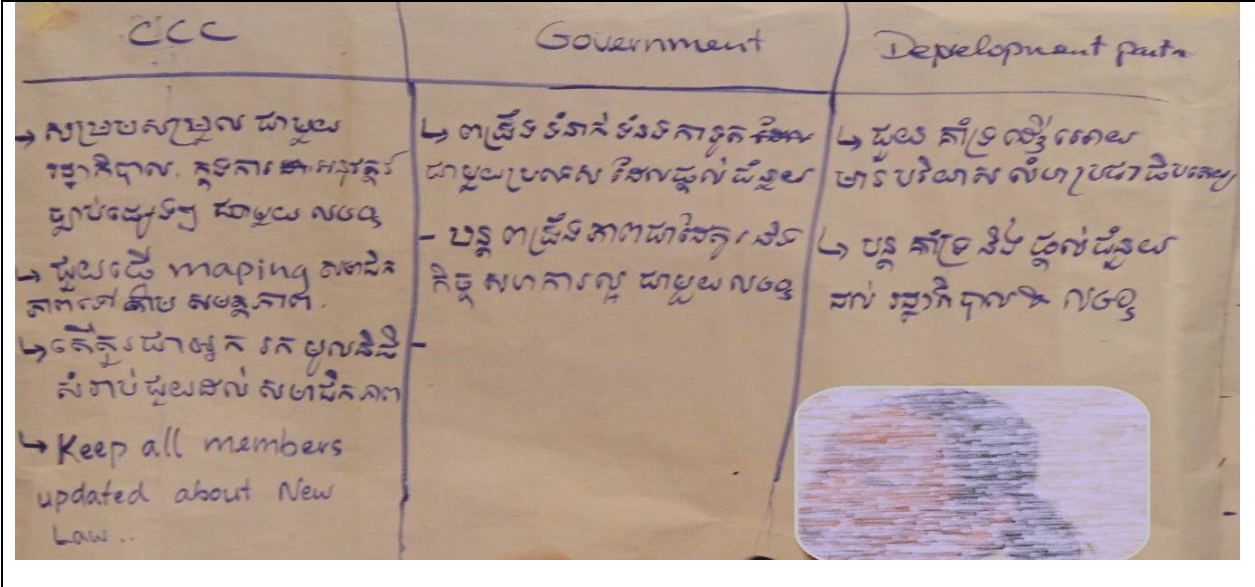 CCC
សម្របសម្រួល ជាមួយ
រដ្ឋាភិបាល. ក្នុងការ អនុវត្តន៍
ច្បាប់ផ្សេងៗ ជាមួយ
→ ជួយធ្វើ maping សមាជិក
ភាពទៅតាម សមត្ថភាព.
ជាអ្នក រកមូលនិធិ
សំរាប់ជួយដល់ សមាជិកភាព
↳ Keep all members
updated about New
Law..
Government
↳ ពង្រឹង ទំនាក់ទំនងការទូត ដែល
ជាមួយប្រទេស ដែលផ្តល់ជំនួយ
- បន្ត ពង្រឹងភាពជាដៃគូរ និង
កិច្ចសហការល្អ ជាមួយ
-
Development
↳ ជួយ គាំទ្រ ធ្វើអោយ
មានបរិយាស លំហប្រជាធិបតេយ្យ
↳ បន្ត គាំទ្រ និង ផ្តល់ជំនួយ
ដល់ រដ្ឋាភិបាល